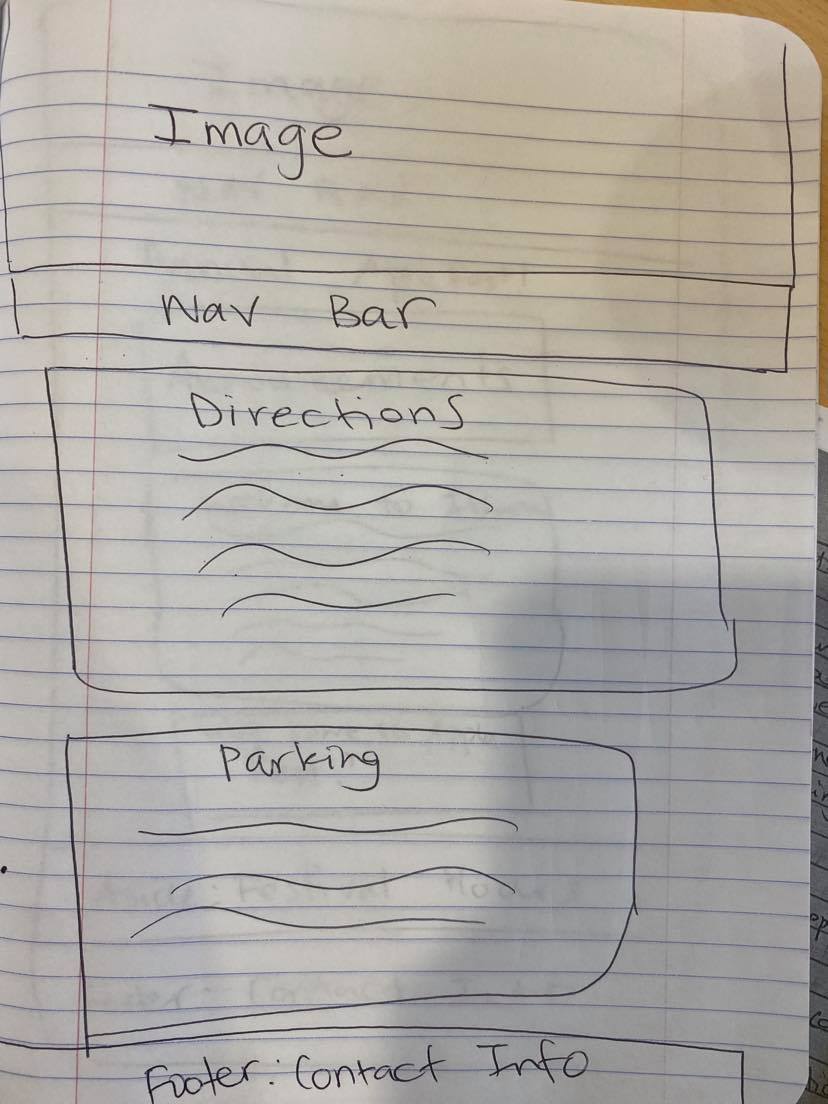 Image
Nav Bar
Directions
Parking
Footer: Contact Info